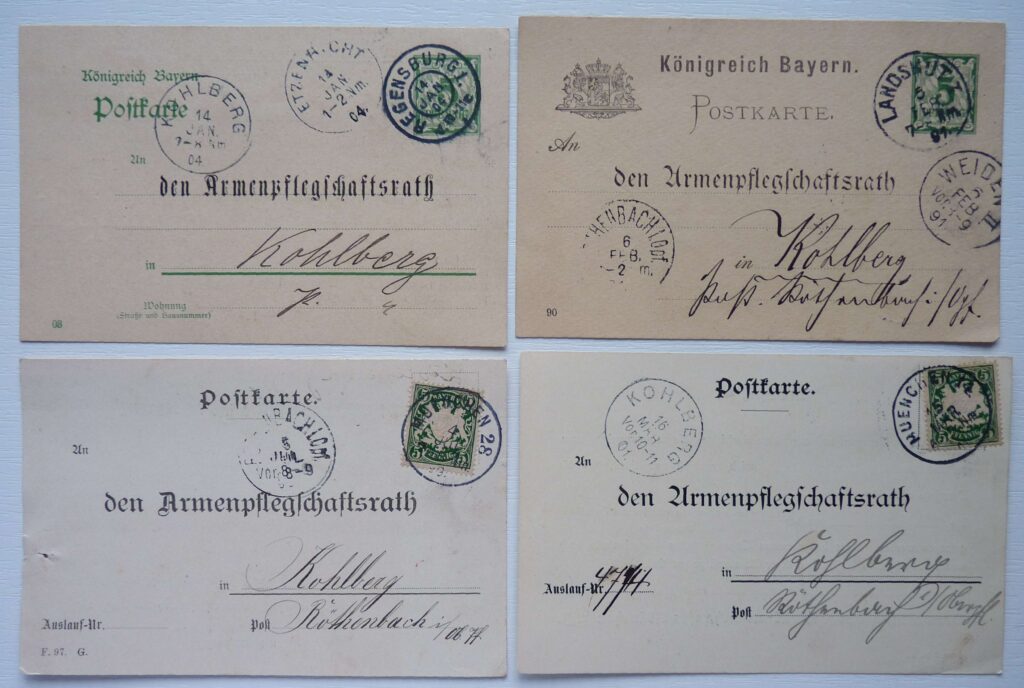 Königreich Bayern
Postkarte
KOHLBERG
14
JAN.
7-8 Nm
04
ETZENRICHT
14
JAN
1-2 Nm.
04.
REGENSBURG
14
JAN
An
den Armenpflegschaftsrath
in Kohlberg
Wohnung
(Straße und Hausnummer)
03
Königreich Bayern.
POSTKARTE.
LANDSHUT
5
91
WEIDEN II
6
FEB.
Vor. 8-9
91
An
den Armenpflegschaftsrath
THENBACH I. OPF.
6
FEB.
1-2 m.
in Kohlberg
Post. Röthenbach i/Opf.
90
Postkarte.
NBACH I. OPF.
5
JUL
Vor 8-9
MUENCHEN 28
5 PFENNIG 5
An
den Armenpflegschaftsrath
in Kohlberg
Post Röthenbach i/Ob Pf
Auslauf-Nr.
F. 97. G.
Postkarte.
KOHLBERG
16
MAR
Vor 10-11
01
MUENCHEN
5 5
An
den Armenpflegschaftsrath
in Kohlberg
Auslauf-Nr.
Post Röthenbach i/Oberpf.